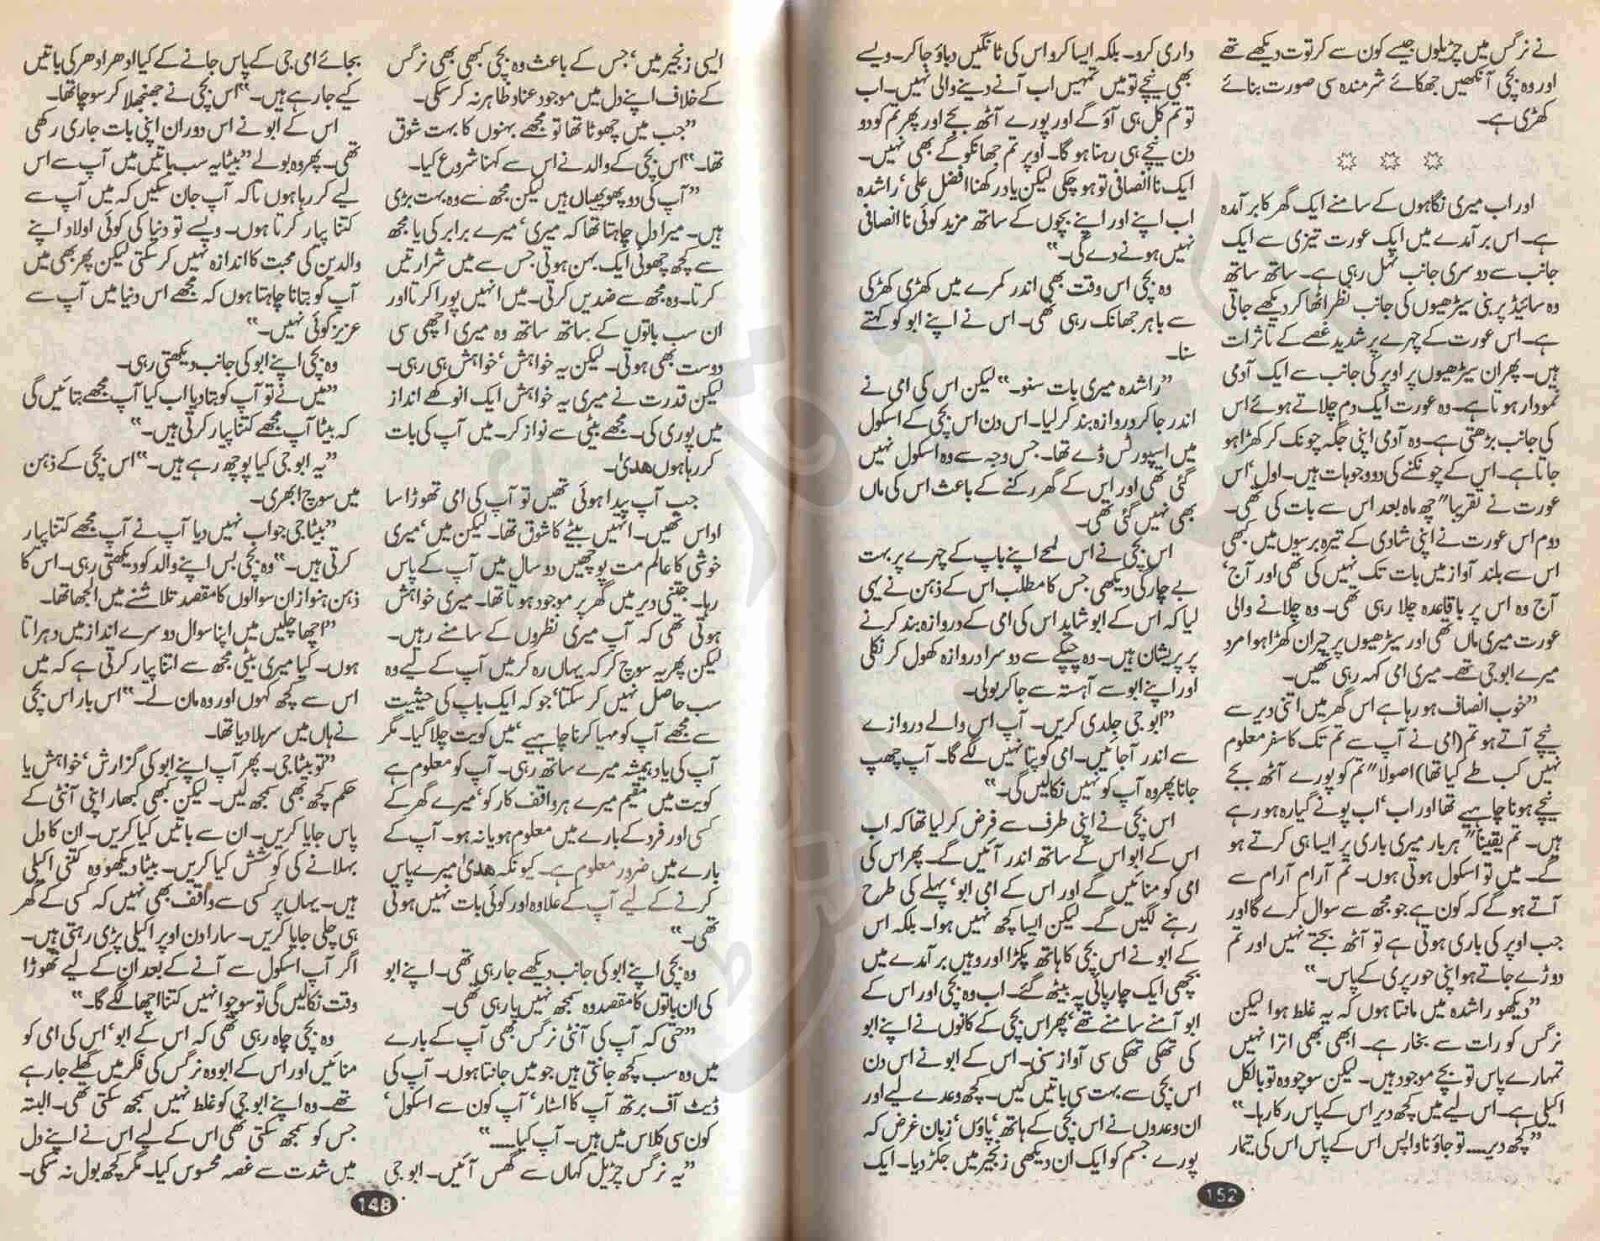 نے نرگس میں چڑیلوں جیسے کون سے کرتوت دیکھے تھے
اور وہ بچی آنکھیں جھکائے شرمندہ سی صورت بنائے
کھڑی ہے۔
اور اب میری نگاہوں کے سامنے ایک گھر کا برآمدہ
ہے۔ اس برآمدے میں ایک عورت تیزی سے ایک
جانب سے دوسری جانب ٹہل رہی ہے۔ ساتھ ساتھ
وہ سائیڈ پر بنی سیڑھیوں کی جانب نظر اٹھا کر دیکھے جاتی
ہے۔ اس عورت کے چہرے پر شدید غصے کے تاثرات
ہیں۔ پھر ان سیڑھیوں پر اوپر کی جانب سے ایک آدمی
نمودار ہوتا ہے۔ وہ عورت ایک دم چلاتے ہوئے اس
کی جانب بڑھتی ہے۔ وہ آدمی اپنی جگہ چونک کر کھڑا ہو
جاتا ہے۔ اس کے چونکنے کی دو وجوہات ہیں۔ اول‘ اس
عورت نے تقریبا" چھ ماہ بعد اس سے بات کی تھی۔
دوم اس عورت نے اپنی شادی کے تیرہ برسوں میں کبھی
اس سے بلند آواز میں بات تک نہیں کی تھی اور آج‘
آج وہ اس پر باقاعدہ چلا رہی تھی۔ وہ چلانے والی
عورت میری ماں تھی اور سیڑھیوں پر حیران کھڑا ہوا مرد
میرے ابو جی تھے۔ میری امی کہہ رہی تھیں۔
”خوب انصاف ہو رہا ہے اس گھر میں اتنی دیر سے
نیچے آتے ہو تم (امی نے آپ سے تم تک کا سفر معلوم
نہیں کب طے کیا تھا) اصولا" تم کو پورے آٹھ بجے
نیچے ہونا چاہیے تھا اور اب‘ اب پونے گیارہ ہو رہے
ہیں۔ تم یقینا" ہر بار میری باری پر ایسا ہی کرتے ہو
گے۔ میں تو اسکول ہوتی ہوں۔ تم آرام آرام سے
آتے ہو گے کہ کون ہے جو مجھ سے سوال کرے گا اور
جب اوپر کی باری ہوتی ہے تو آٹھ بجتے نہیں اور تم
دوڑے جاتے ہو اپنی حور پری کے پاس۔“
”دیکھو راشدہ میں مانتا ہوں کہ یہ غلط ہوا لیکن
نرگس کو رات سے بخار ہے۔ ابھی بھی اترا نہیں
تمہارے پاس تو بچے موجود ہیں۔ لیکن سوچو وہ تو بالکل
اکیلی ہے۔ اس لیے میں کچھ دیر اس کے پاس رکا رہا۔“
”کچھ دیر..... تو جاؤ نا واپس اس کے پاس اس کی تیمار
داری کرو۔ بلکہ ایسا کرو اس کی ٹانگیں دباؤ جا کر۔ ویسے
بھی نیچے تو میں تمہیں اب آنے دینے والی نہیں۔ اب
تو تم کل ہی آؤ گے اور پورے آٹھ بجے اور پھر تم کو دو
دن نیچے ہی رہنا ہو گا۔ اوپر تم جھانکو گے بھی نہیں۔
ایک ناانصافی تو ہو چکی لیکن یاد رکھنا افضل علی‘ راشدہ
اب اپنے اور اپنے بچوں کے ساتھ مزید کوئی ناانصافی
نہیں ہونے دے گی۔“
وہ بچی اس وقت بھی اندر کمرے میں کھڑی کھڑکی
سے باہر جھانک رہی تھی۔ اس نے اپنے ابو کو کہتے
سنا۔
”راشدہ میری بات سنو۔“ لیکن اس کی امی نے
اندر جا کر دروازہ بند کر لیا۔ اس دن اس بچی کے اسکول
میں اسپورٹس ڈے تھا۔ جس وجہ سے وہ اسکول نہیں
گئی تھی اور اس کے گھر رکنے کے باعث اس کی ماں
بھی نہیں گئی تھی۔
اس بچی نے اس لمحے اپنے باپ کے چہرے پر بہت
بے چارگی دیکھی جس کا مطلب اس کے ذہن نے یہی
لیا کہ اس کے ابو شاید اس کی امی کے دروازہ بند کرنے
پر پریشان ہیں۔ وہ چپکے سے دوسرا دروازہ کھول کر نکلی
اور اپنے ابو سے آہستہ سے جا کر بولی۔
”ابو جی جلدی کریں۔ آپ اس والے دروازے
سے اندر آ جائیں۔ امی کو پتا نہیں لگے گا۔ آپ چھپ
جانا پھر وہ آپ کو نہیں نکالیں گی۔“
اس بچی نے اپنی طرف سے فرض کر لیا تھا کہ اب
اس کے ابو اس کے ساتھ اندر آئیں گے۔ پھر اس کی
امی کو منائیں گے اور اس کے امی ابو‘ پہلے کی طرح
رہنے لگیں گے۔ لیکن ایسا کچھ نہیں ہوا۔ بلکہ اس
کے ابو نے اس بچی کا ہاتھ پکڑا اور وہیں برآمدے میں
بچھی ایک چارپائی پہ بیٹھ گئے۔ اب وہ بچی اور اس کے
ابو آمنے سامنے تھے‘ پھر اس بچی کے کانوں نے اپنے ابو
کی تھکی تھکی سی آواز سنی۔ اس کے ابو نے اس دن
اس بچی سے بہت سی باتیں کیں۔ کچھ وعدے لیے اور
ان وعدوں نے اس بچی کے ہاتھ‘ پاؤں‘ زبان غرض کہ
پورے جسم کو ایک ان دیکھی زنجیر میں جکڑ دیا۔ ایک
152
ایسی زنجیر میں‘ جس کے باعث وہ بچی کبھی بھی نرگس
کے خلاف اپنے دل میں موجود عناد ظاہر نہ کر سکی۔
”جب میں چھوٹا تھا تو مجھے بہنوں کا بہت شوق
تھا۔“ اس بچی کے والد نے اس سے کہنا شروع کیا۔
”آپ کی دو پھوپھیاں ہیں لیکن مجھ سے وہ بہت بڑی
ہیں۔ میرا دل چاہتا تھا کہ میری‘ میرے برابر کی یا مجھ
سے کچھ چھوٹی ایک بہن ہوتی جس سے میں شرارتیں
کرتا۔ وہ مجھ سے ضدیں کرتی۔ میں انہیں پورا کرتا اور
ان سب باتوں کے ساتھ ساتھ وہ میری اچھی سی
دوست بھی ہوتی۔ لیکن یہ خواہش‘ خواہش ہی رہی۔
لیکن قدرت نے میری یہ خواہش ایک انوکھے انداز
میں پوری کی۔ مجھے بیٹی سے نواز کر۔ میں آپ کی بات
کر رہا ہوں ھدیٰ۔
جب آپ پیدا ہوئی تھیں تو آپ کی امی تھوڑا سا
اداس تھیں۔ انہیں بیٹے کا شوق تھا۔ لیکن میں‘ میری
خوشی کا عالم مت پوچھیں دو سال میں آپ کے پاس
رہا۔ جتنی دیر میں گھر پر موجود ہوتا تھا۔ میری خواہش
ہوتی تھی کہ آپ میری نظروں کے سامنے رہیں۔
لیکن پھر یہ سوچ کر کہ یہاں رہ کر میں آپ کے لیے وہ
سب حاصل نہیں کر سکتا‘ جو کہ ایک باپ کی حیثیت
سے مجھے آپ کو مہیا کرنا چاہیے‘ میں کویت چلا گیا۔ مگر
آپ کی یاد ہمیشہ میرے ساتھ رہی۔ آپ کو معلوم ہے
کویت میں مقیم میرے ہر واقف کار کو‘ میرے گھر کے
کسی اور فرد کے بارے میں معلوم ہو یا نہ ہو۔ آپ کے
بارے میں ضرور معلوم ہے۔ کیونکہ ھدیٰ میرے پاس
کرنے کے لیے آپ کے علاوہ اور کوئی بات نہیں ہوتی
تھی۔“
وہ بچی اپنے ابو کی جانب دیکھے جا رہی تھی۔ اپنے ابو
کی ان باتوں کا مقصد وہ سمجھ نہیں پا رہی تھی۔
”حتیٰ کہ آپ کی آنٹی نرگس بھی آپ کے بارے
میں وہ سب کچھ جانتی ہیں جو میں جانتا ہوں۔ آپ کی
ڈیٹ آف برتھ آپ کا اسٹار‘ آپ کون سے اسکول‘
کون سی کلاس میں ہیں۔ آپ کیا.....“
”یہ نرگس چڑیل کہاں سے گھس آئیں۔ ابو جی
بجائے امی جی کے پاس جانے کے کیا ادھر ادھر کی باتیں
کیے جا رہے ہیں۔“ اس بچی نے جھنجھلا کر سوچا تھا۔
اس کے ابو نے اس دوران اپنی بات جاری رکھی
تھی۔ پھر وہ بولے ”بیٹا یہ سب باتیں میں آپ سے اس
لیے کر رہا ہوں تاکہ آپ جان سکیں کہ میں آپ سے
کتنا پیار کرتا ہوں۔ ویسے تو دنیا کی کوئی اولاد اپنے
والدین کی محبت کا اندازہ نہیں کر سکتی لیکن پھر بھی میں
آپ کو بتانا چاہتا ہوں کہ مجھے اس دنیا میں آپ سے
عزیز کوئی نہیں۔“
وہ بچی اپنے ابو کی جانب دیکھتی رہی۔
”میں نے تو آپ کو بتا دیا اب کیا آپ مجھے بتائیں گی
کہ بیٹا آپ مجھے کتنا پیار کرتی ہیں۔“
”یہ ابو جی کیا پوچھ رہے ہیں۔“ اس بچی کے ذہن
میں سوچ ابھری۔
”بیٹا جی جواب نہیں دیا آپ نے آپ مجھے کتنا پیار
کرتی ہیں۔“ وہ بچی بس اپنے والد کو دیکھتی رہی۔ اس کا
ذہن ہنوز ان سوالوں کا مقصد تلاشنے میں الجھا تھا۔
”اچھا چلیں میں اپنا سوال دوسرے انداز میں دہراتا
ہوں۔ کیا میری بیٹی مجھ سے اتنا پیار کرتی ہے کہ میں
اس سے کچھ کہوں اور وہ مان لے۔“ اس بار اس بچی
نے ہاں میں سر ہلا دیا تھا۔
”تو بیٹا جی۔ پھر آپ اپنے ابو کی گزارش‘ خواہش یا
حکم کچھ بھی سمجھ لیں۔ لیکن کبھی کبھار اپنی آنٹی کے
پاس جایا کریں۔ ان سے باتیں کیا کریں۔ ان کا دل
بہلانے کی کوشش کیا کریں۔ بیٹا دیکھو وہ کتنی اکیلی
ہیں۔ یہاں پر کسی سے واقف بھی نہیں کہ کسی کے گھر
ہی چلی جایا کریں۔ سارا دن اوپر اکیلی پڑی رہتی ہیں۔
اگر آپ اسکول سے آنے کے بعد ان کے لیے تھوڑا
وقت نکالیں گی تو سوچو انہیں کتنا اچھا لگے گا۔“
وہ بچی چاہ رہی تھی کہ اس کے ابو‘ اس کی امی کو
منائیں اور اس کے ابو وہ نرگس کی فکر میں گھلے جا رہے
تھے۔ وہ اپنے ابو جی کو غلط نہیں سمجھ سکتی تھی۔ البتہ
جس کو سمجھ سکتی تھی اس کے لیے اس نے اپنے دل
میں شدت سے غصہ محسوس کیا۔ مگر کچھ بول نہ سکی۔
148